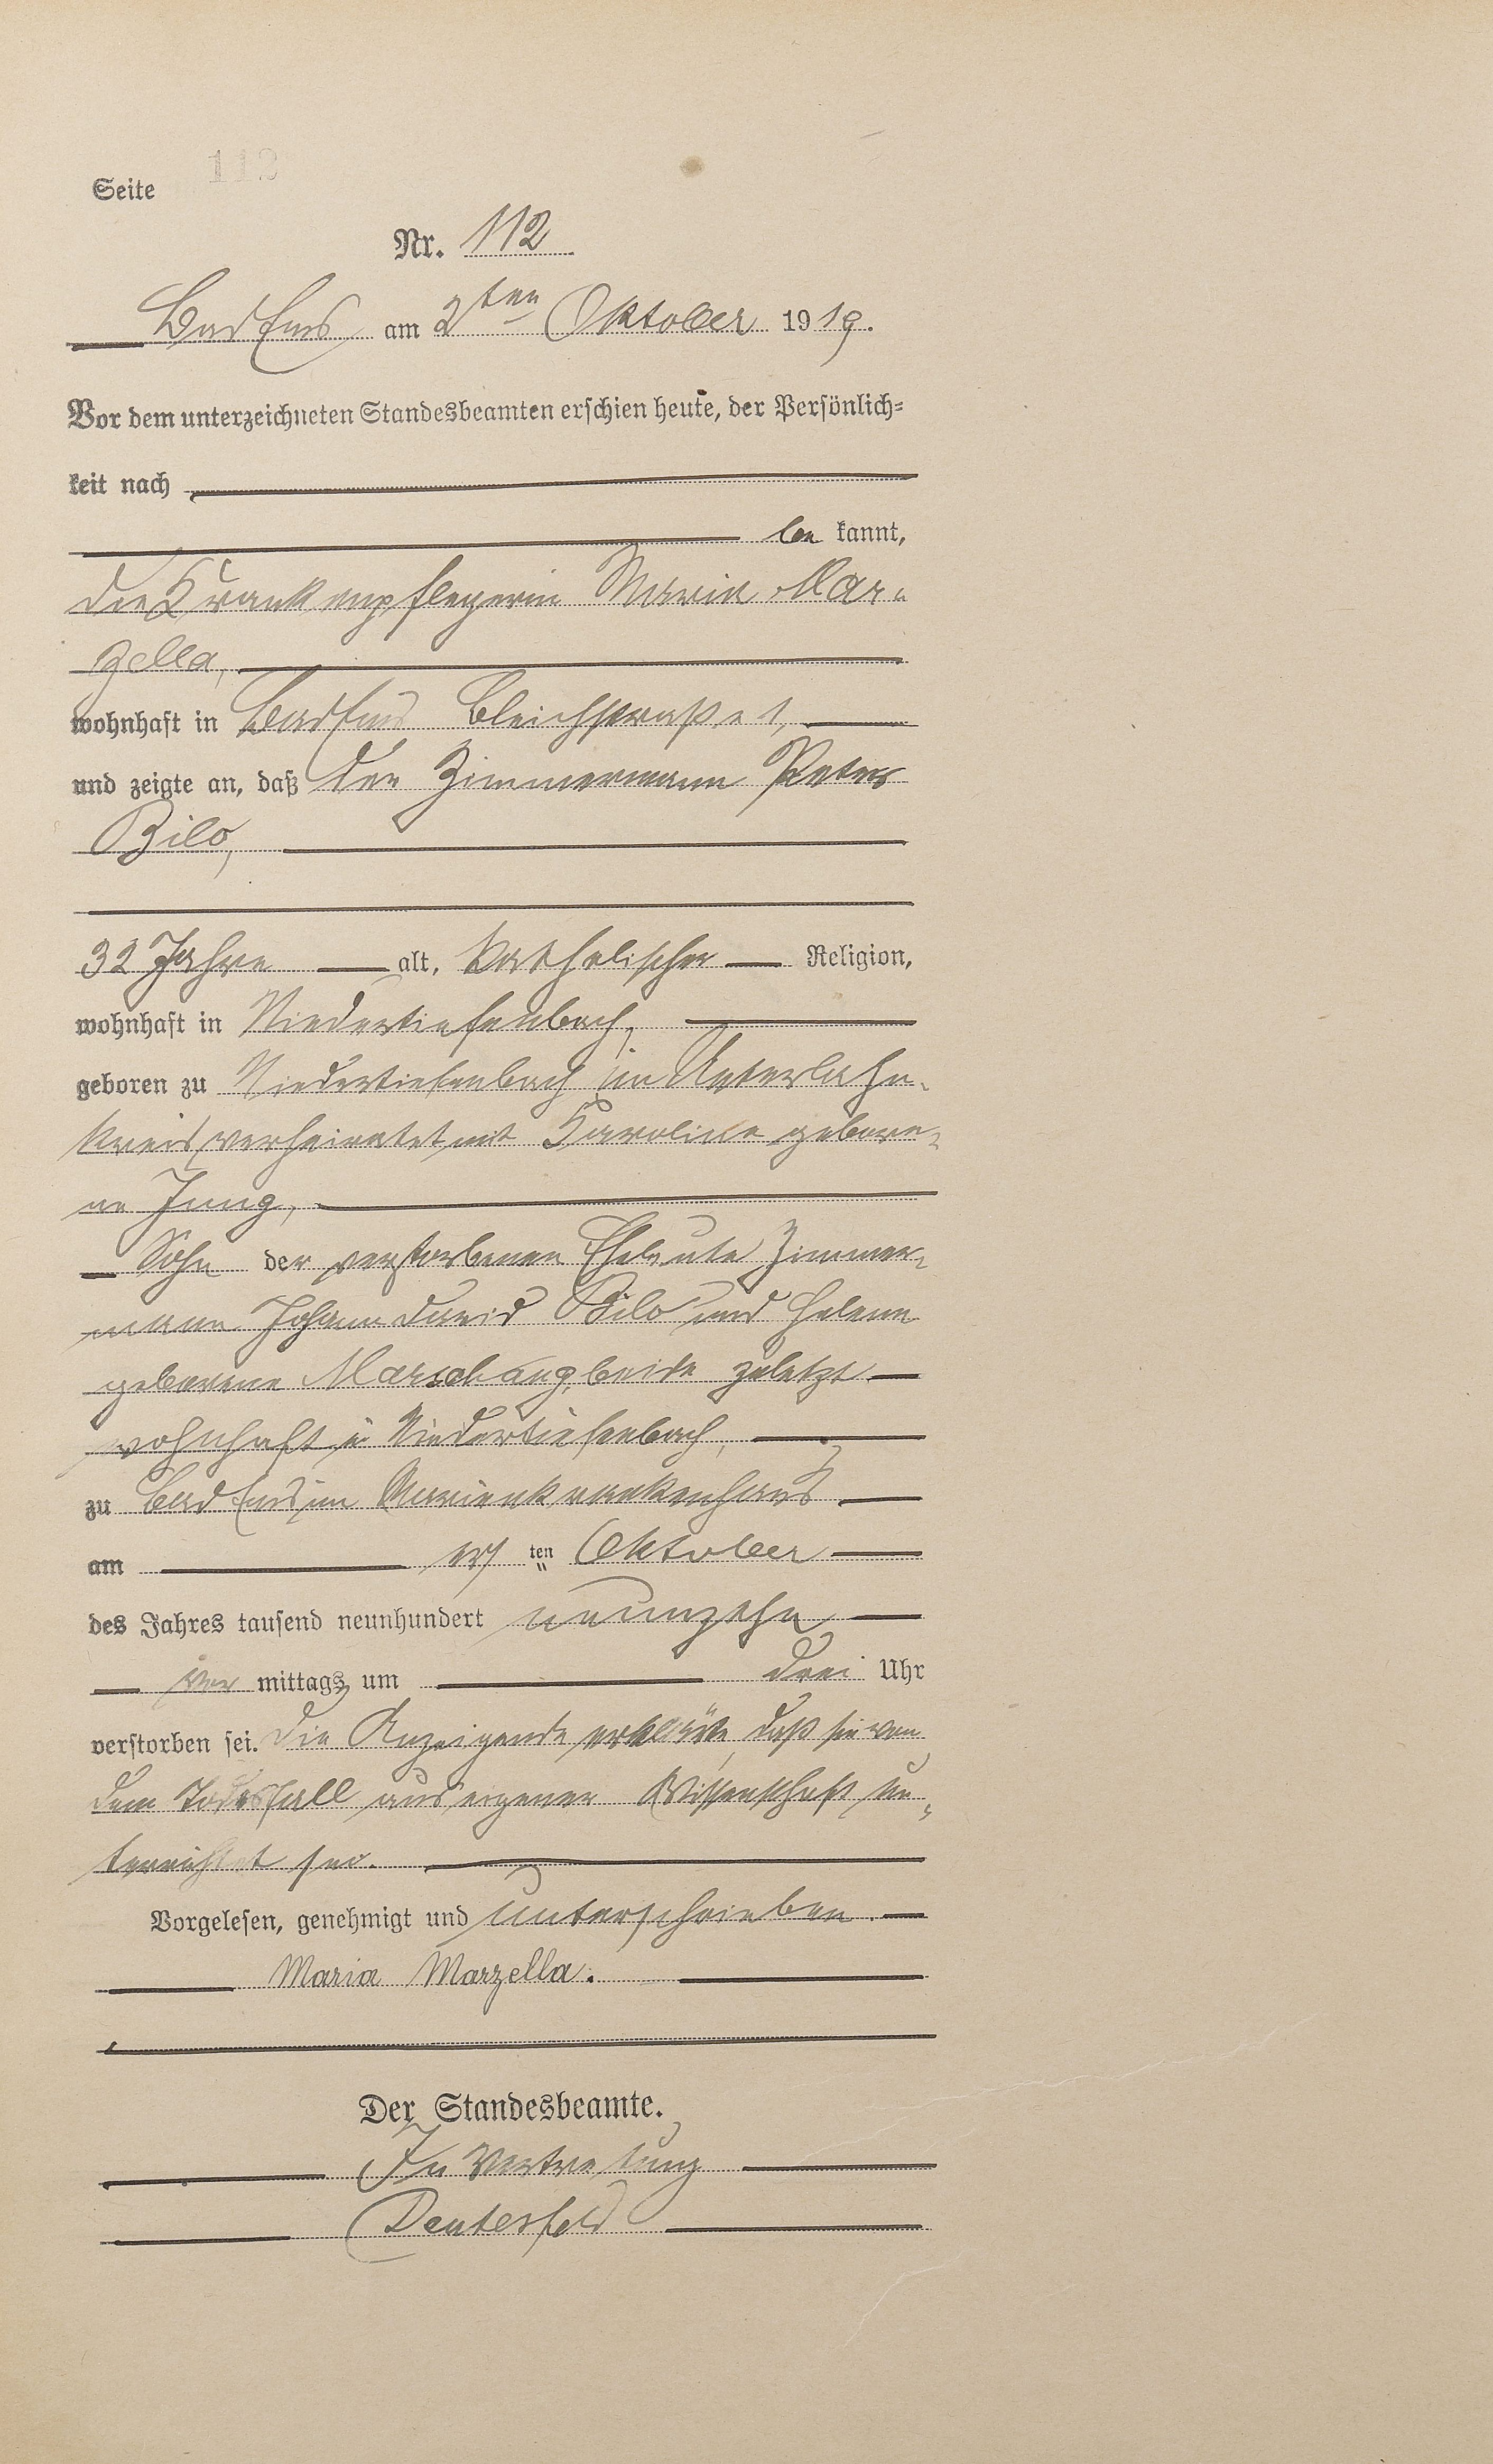 Seite 112
Nr. 112
Bad Ems am 2ten Oktober 1919.
Vor dem unterzeichneten Standesbeamten erschien heute, der Persönlich=
keit nach
be kannt,
die Krankenpflegerin Maria Mar-
zella,
wohnhaft in Bad Ems Bleichstraße 1,
und zeigte an, daß der Zimmermann Peter
Bilo,
32 Jahre alt, katholischer Religion,
wohnhaft in Niedertiefenbach,
geboren zu Niedertiefenbach im Unterlahn-
kreis, verheiratet mit Karoline gebore-
ne Jung,
Sohn der verstorbenen Eheleute Zimmer-
mann Johann David Bilo und Helene
geborene Marschang, beide zuletzt
wohnhaft in Niedertiefenbach,
zu Bad Ems im Marienkrankenhaus
am ten Oktober
des Jahres tausend neunhundert neunzehn
vor mittags um drei Uhr
verstorben sei. Die Anzeigende erklärte, daß sie von
dem Todesfall aus eigener Wissenschaft un-
terrichtet sei.
Vorgelesen, genehmigt und unterschrieben.
Maria Marzella.
Der Standesbeamte.
In Vertretung